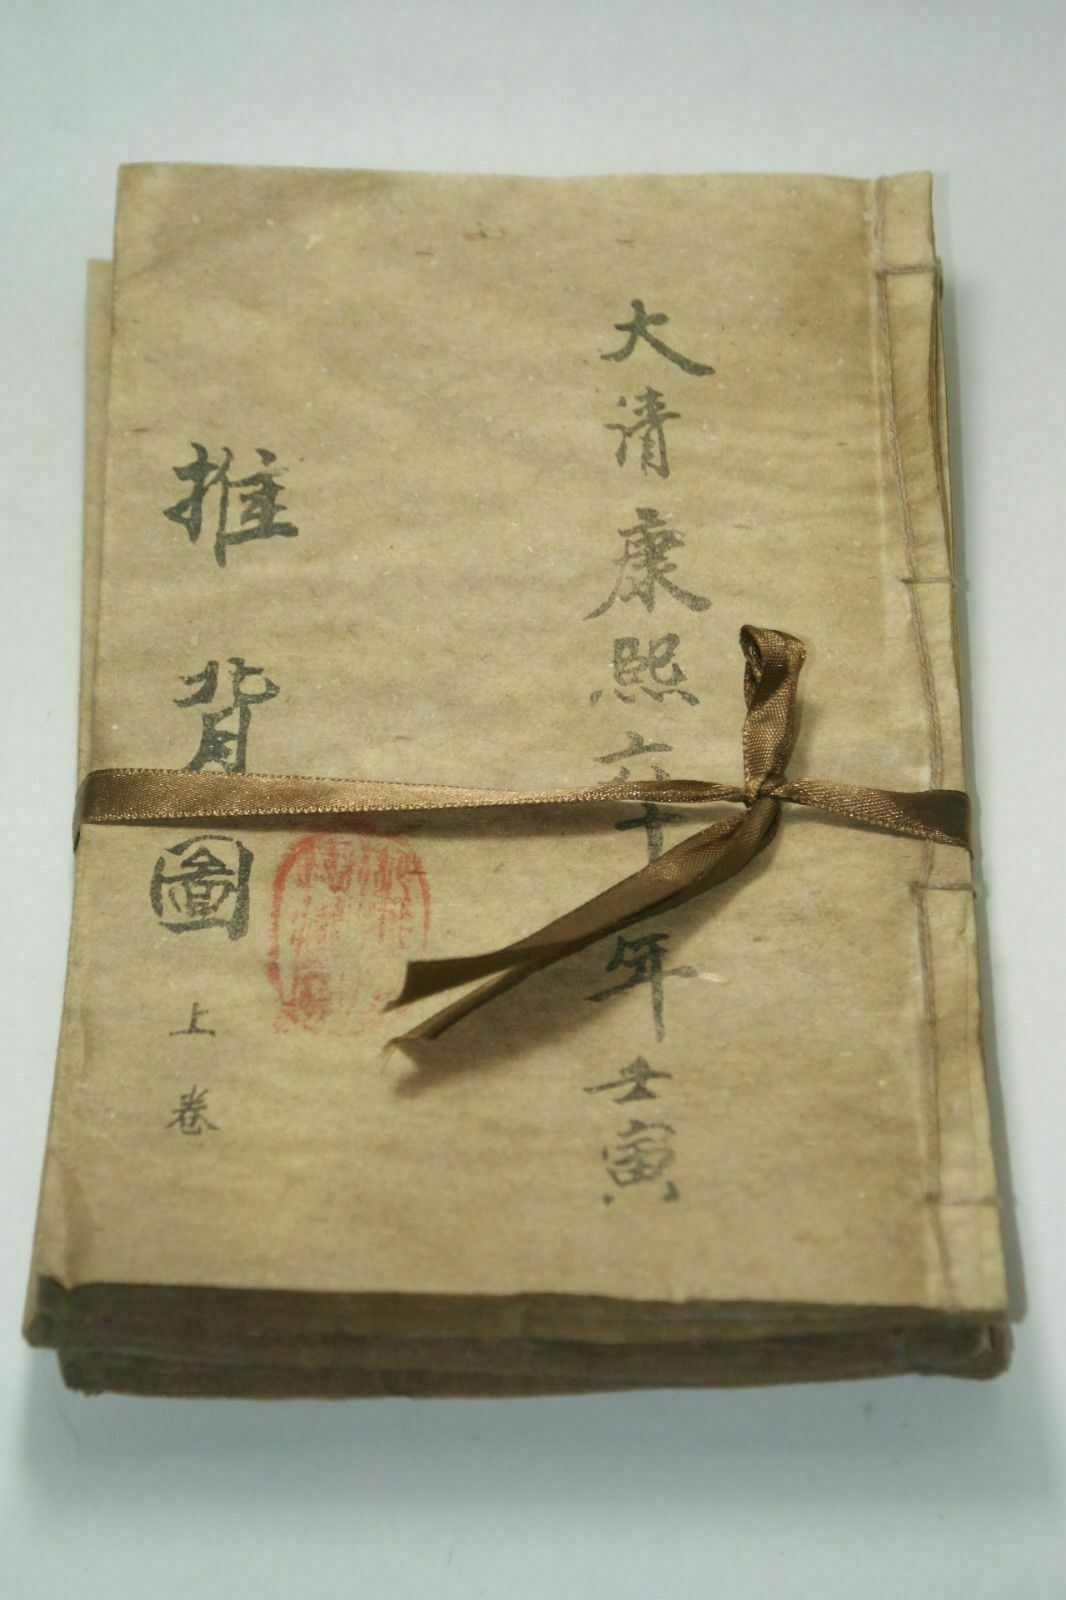 大清康熙六十年壬寅
推背圖上卷